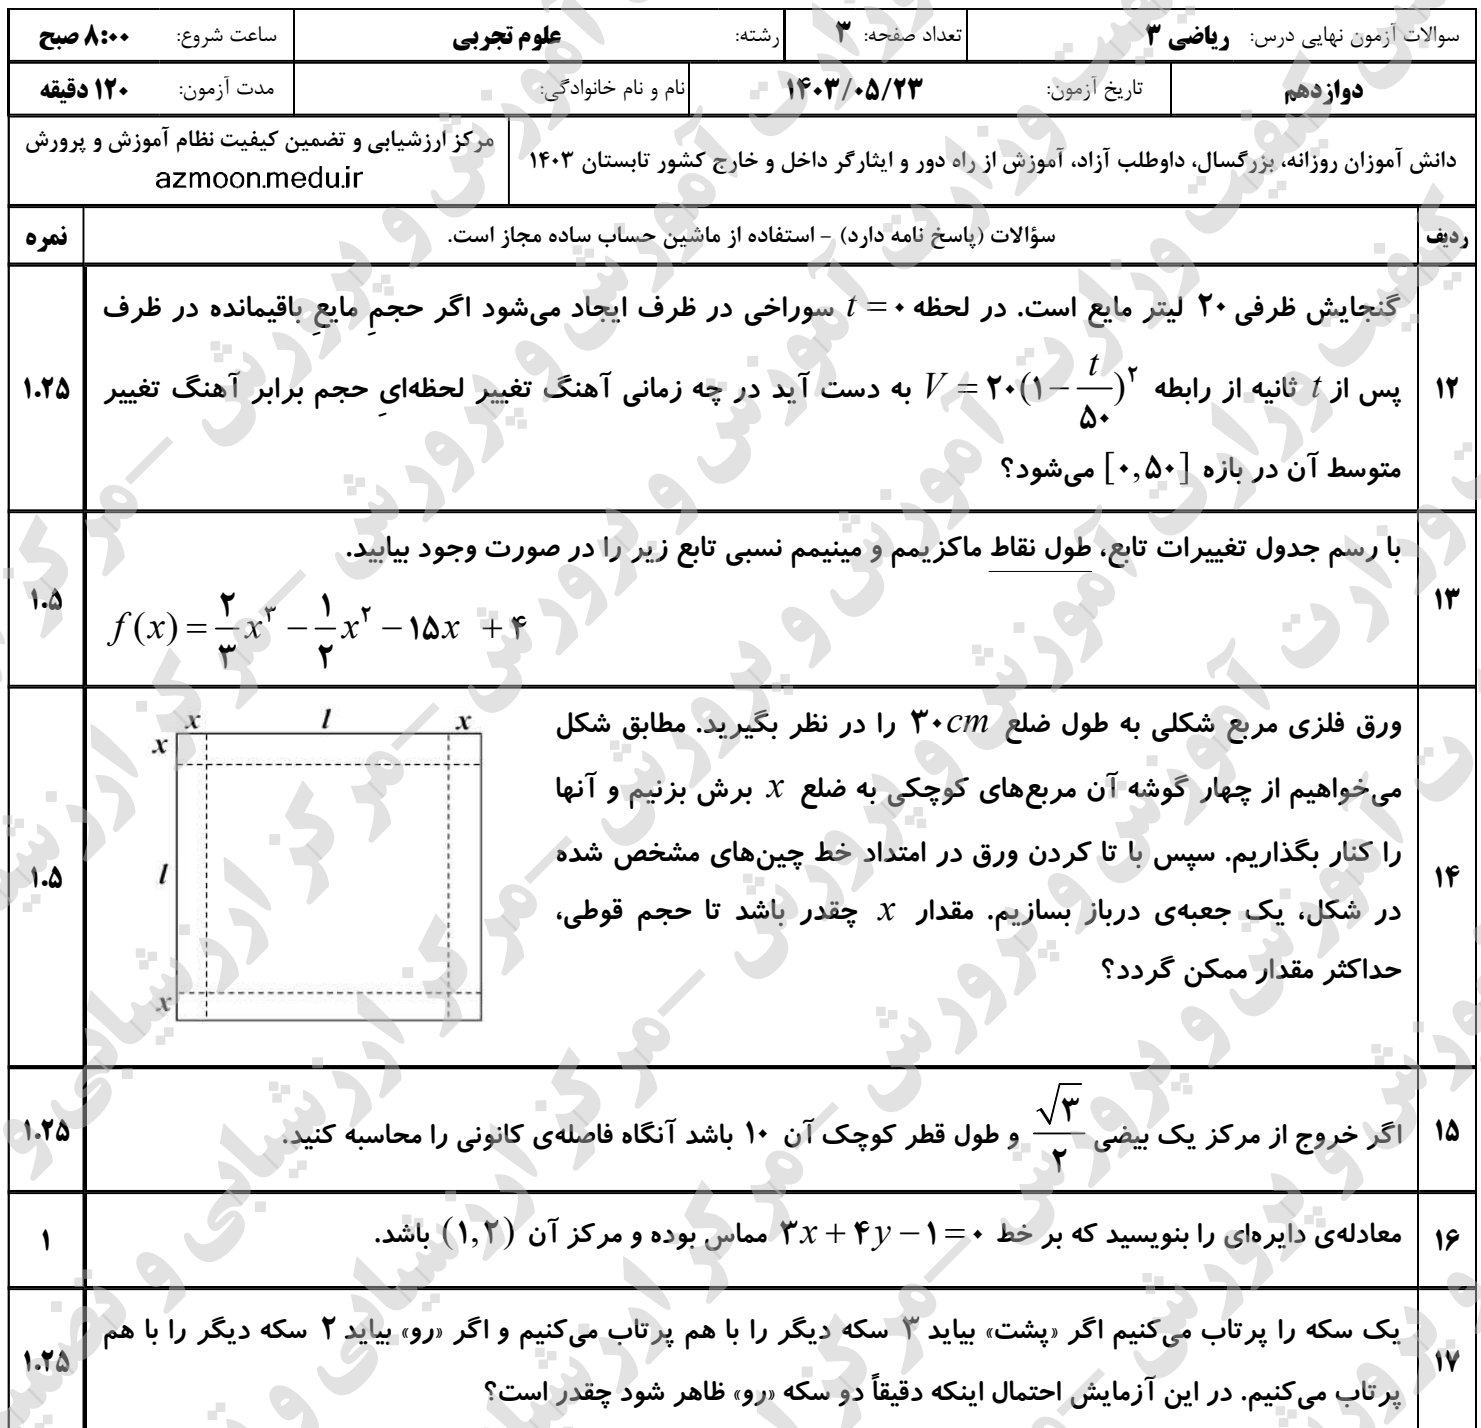 سوالات آزمون نهایی درس: ریاضی ۳ تعداد صفحه: ۳ رشته: علوم تجربی ساعت شروع: ۸:۰۰ صبح
دوازدهم تاریخ آزمون: ۱۴۰۳/۰۵/۲۳ نام و نام خانوادگی: مدت آزمون: ۱۲۰ دقیقه
دانش آموزان روزانه، بزرگسال، داوطلب آزاد، آموزش از راه دور و ایثارگر داخل و خارج کشور تابستان ۱۴۰۳ مرکز ارزشیابی و تضمین کیفیت نظام آموزش و پرورش
azmoon.medu.ir
ردیف سؤالات (پاسخ نامه دارد) - استفاده از ماشین حساب ساده مجاز است. نمره
گنجایش ظرفی ۲۰ لیتر مایع است. در لحظه t = ۰ سوراخی در ظرف ایجاد می‌شود اگر حجمِ مایعِ باقیمانده در ظرف
۱۲ پس از t ثانیه از رابطه V = ۲۰(۱ − t/۵۰)^۲ به دست آید در چه زمانی آهنگ تغییر لحظه‌ایِ حجم برابر آهنگ تغییر ۱.۲۵
متوسط آن در بازه [۰,۵۰] می‌شود؟
با رسم جدول تغییرات تابع، طول نقاط ماکزیمم و مینیمم نسبی تابع زیر را در صورت وجود بیابید.
۱۳ f(x) = ۲/۳ x^۳ − ۱/۲ x^۲ − ۱۵x + ۴ ۱.۵
ورق فلزی مربع شکلی به طول ضلع ۳۰cm را در نظر بگیرید. مطابق شکل
می‌خواهیم از چهار گوشه آن مربع‌های کوچکی به ضلع x برش بزنیم و آنها
را کنار بگذاریم. سپس با تا کردن ورق در امتداد خط چین‌های مشخص شده
۱۴ ۱.۵
در شکل، یک جعبه‌ی درباز بسازیم. مقدار x چقدر باشد تا حجم قوطی،
حداکثر مقدار ممکن گردد؟
x l x
x
l
x
۱۵ اگر خروج از مرکز یک بیضی √۳/۲ و طول قطر کوچک آن ۱۰ باشد آنگاه فاصله‌ی کانونی را محاسبه کنید. ۱.۲۵
۱۶ معادله‌ی دایره‌ای را بنویسید که بر خط ۳x + ۴y − ۱ = ۰ مماس بوده و مرکز آن (۱,۲) باشد. ۱
یک سکه را پرتاب می‌کنیم اگر «پشت» بیاید ۳ سکه دیگر را با هم پرتاب می‌کنیم و اگر «رو» بیاید ۲ سکه دیگر را با هم
۱۷ ۱.۲۵
پرتاب می‌کنیم. در این آزمایش احتمال اینکه دقیقاً دو سکه «رو» ظاهر شود چقدر است؟